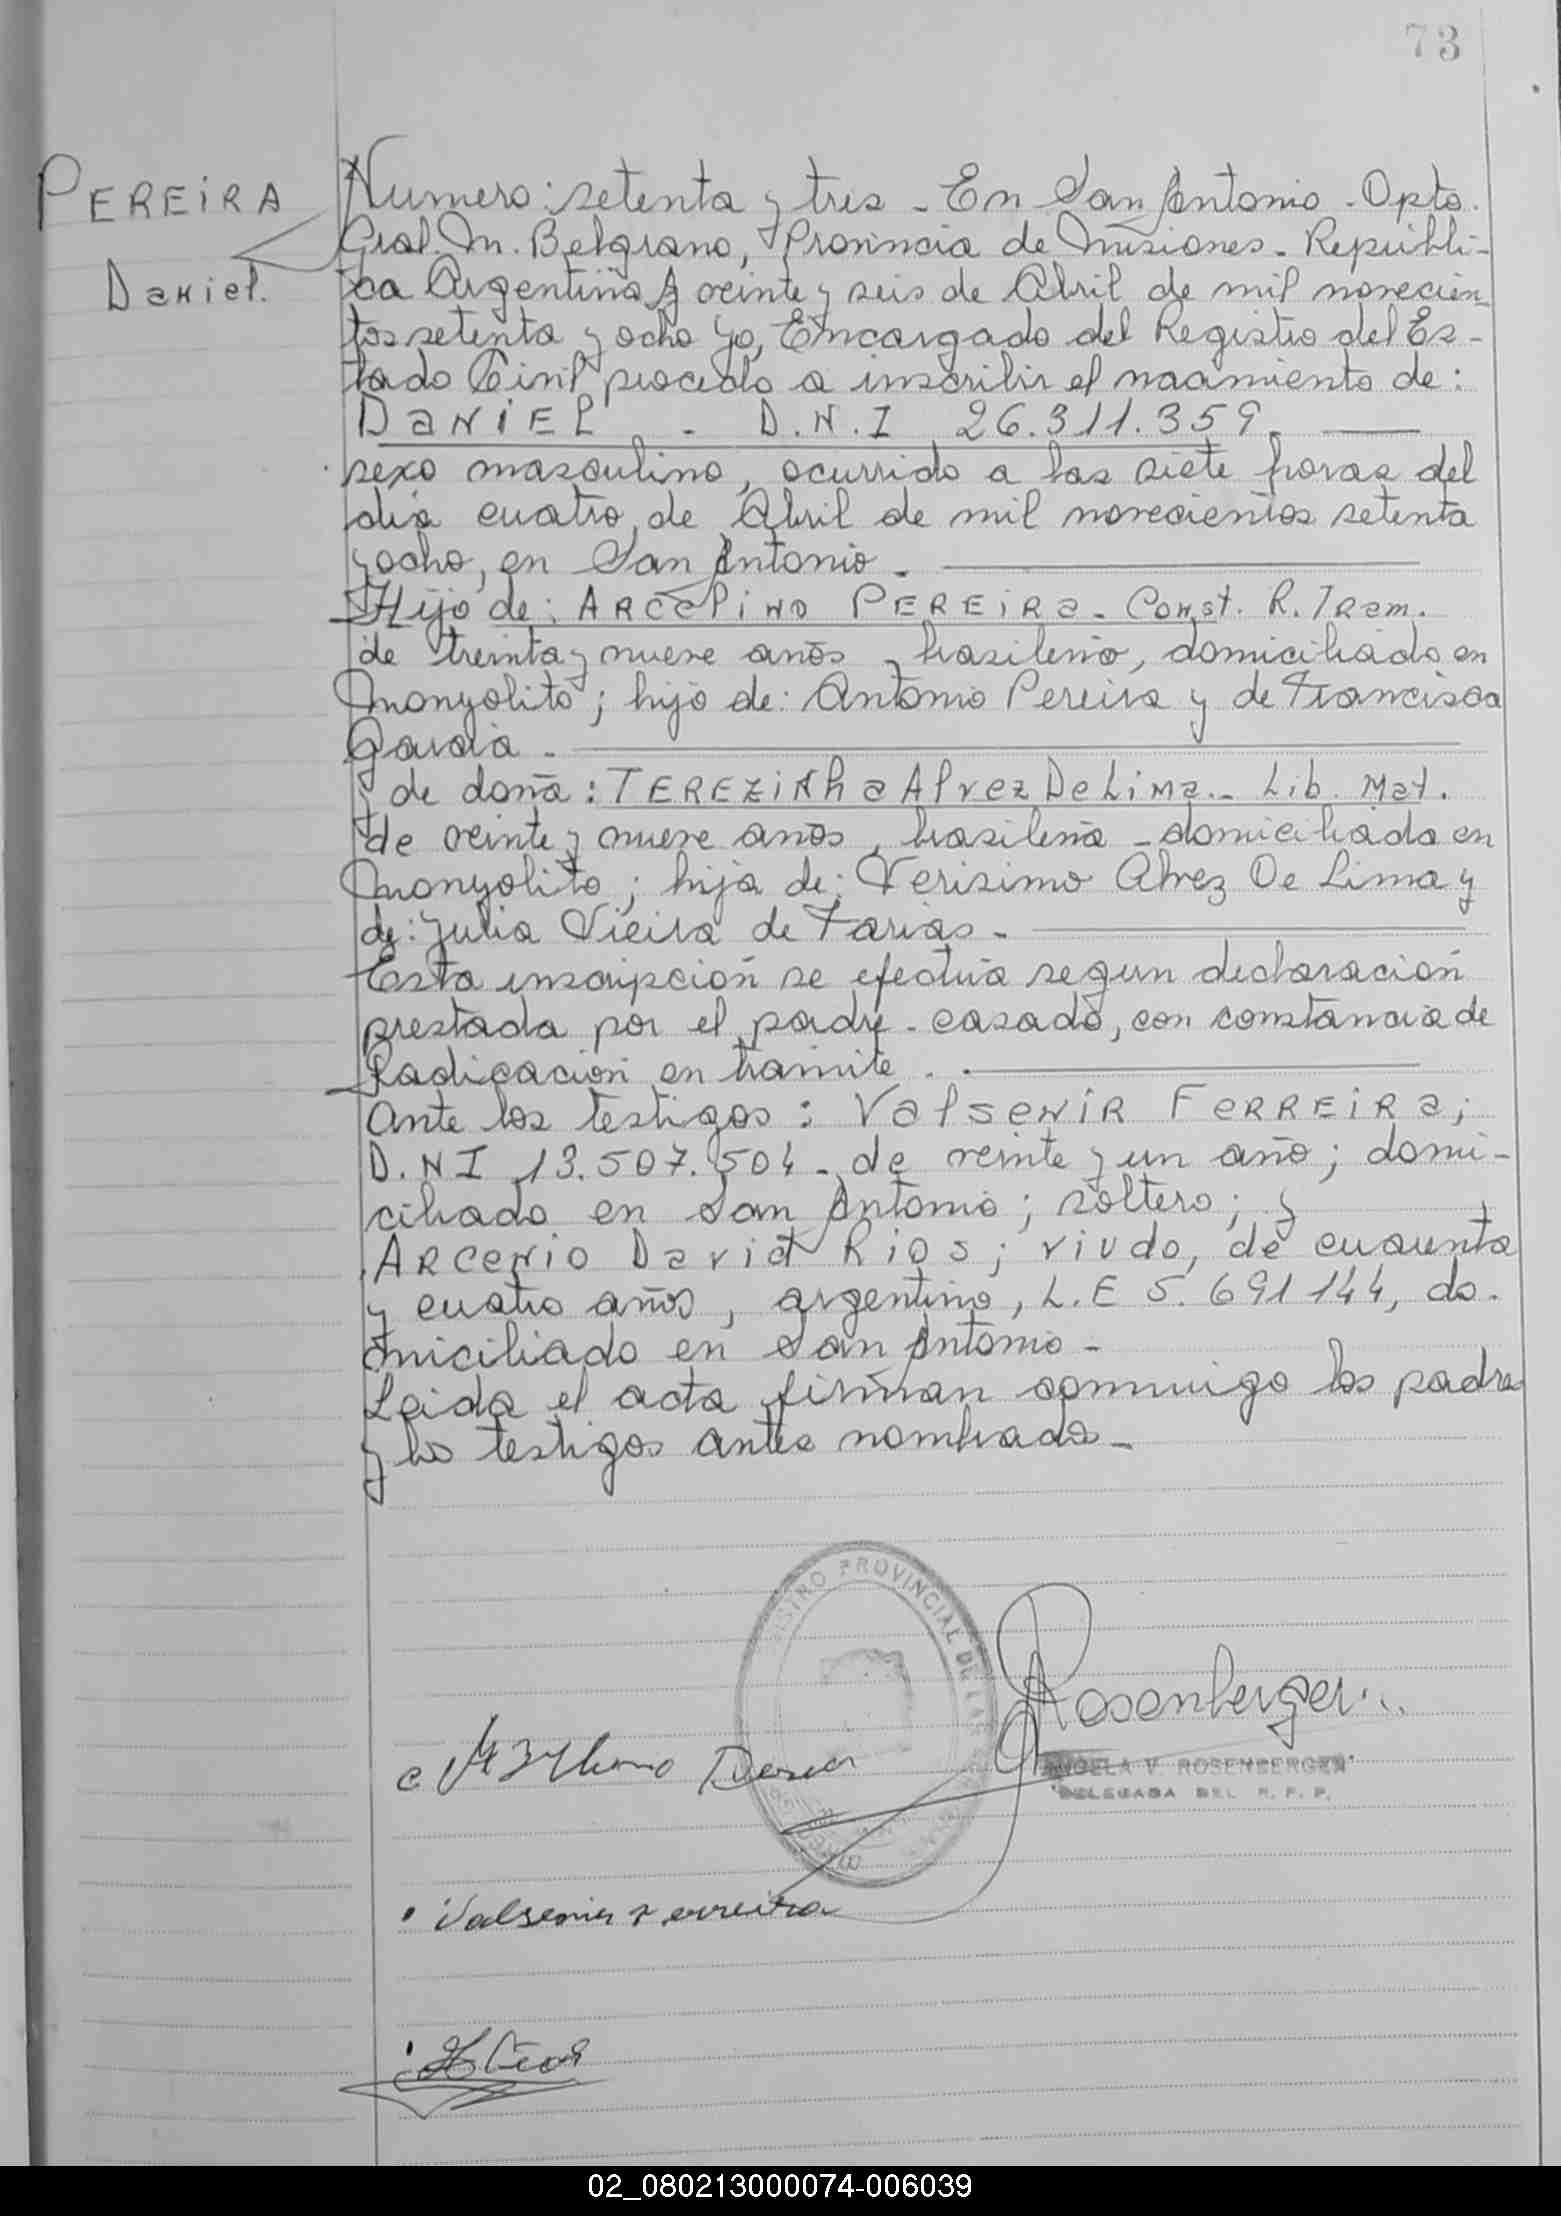 73
PEREIRA
Daniel.
Numero: setenta y tres - En San Antonio - Dpto.
Gral. M. Belgrano, Provincia de Misiones - Repúbli-
ca Argentina, a veinte y seis de Abril de mil novecien-
tos setenta y ocho yo, Encargado del Registro del Es-
tado Civil procedo a inscribir el nacimiento de:
DANIEL - D.N.I 26.311.359.
sexo masculino, ocurrido a las siete horas del
día cuatro de Abril de mil novecientos setenta
y ocho, en San Antonio -
Hijo de: ARCELINO PEREIRA - Const. R. Tram.
de treinta y nueve años, brasileño, domiciliado en
Monyolito; hijo de: Antonio Pereira y de Francisca
Garcia -
y de doña: TEREZINHA Alvez De Lima - Lib. Mat.
de veinte y nueve años, brasileña - domiciliada en
Monyolito; hija de: Verisimo Alvez De Lima y
de: Julia Vieira de Farias -
Esta inscripción se efectúa segun declaración
prestada por el padre - casado, con constancia de
Radicación en tramite.
Ante los testigos: Valsenir FERREIRA;
D.N.I 13.507.504 - de veinte y un año; domi-
ciliado en San Antonio; soltero; y
ARCENIO David Rios; viudo, de cuarenta
y cuatro años, argentino, L.E 5.691144, do-
miciliado en San Antonio -
Leida el acta firman conmigo los padres
y los testigos antes nombrados -
REGISTRO PROVINCIAL DE LAS
Rosenberger
ANGELA V. ROSENBERGER
DELEGADA DEL R. P. P.
Valsenir Ferreira
02_080213000074-006039